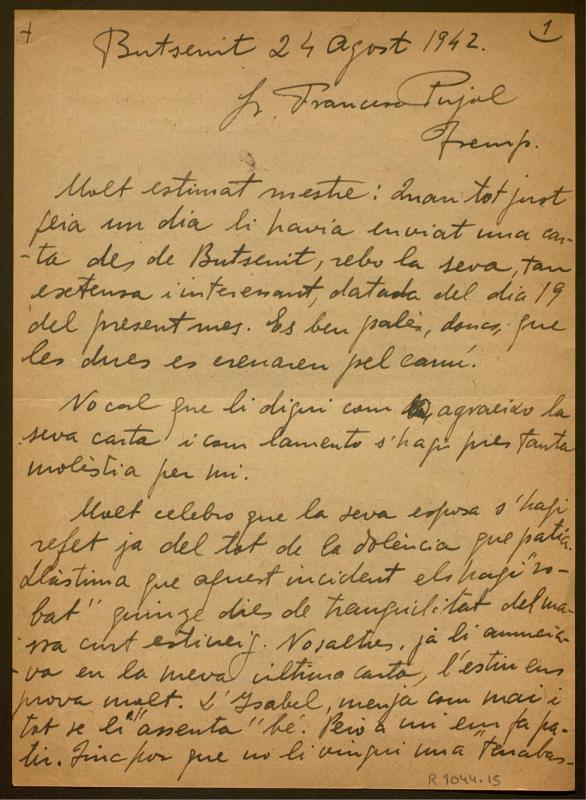 1
Butsenit 24 Agost 1942.
Sr. Francesc Pujol
Tremp.
Molt estimat mestre: Quan tot just
feia un dia li havia enviat una car-
-ta des de Butsenit, rebo la seva, tan
extensa i interessant, datada del dia 19
del present mes. Es ben palès, doncs, que
les dues es creuaren pel camí.
No cal que li digui com agraeixo la
seva carta i com lamento s'hagi près tanta
molèstia per mi.
Molt celebro que la seva esposa s'hagi
refet ja del tot de la dolència que patia.
Llàstima que aquest incident els hagi "ro-
bat" quinze dies de tranquilitat del ma-
ssa curt estiueig. Nosaltres, ja li anuncia-
-va en la meva última carta, l'estiu ens
prova molt. L'Ysabel, menja com mai i
tot se li "assenta" bé. Però a mi em fa pa-
tir. Tinc por que no li vingui una "tenabas-
R.1044-15